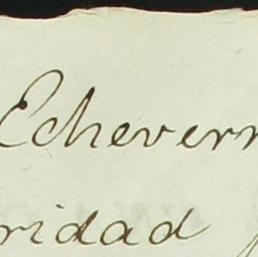 Echeverr
ridad